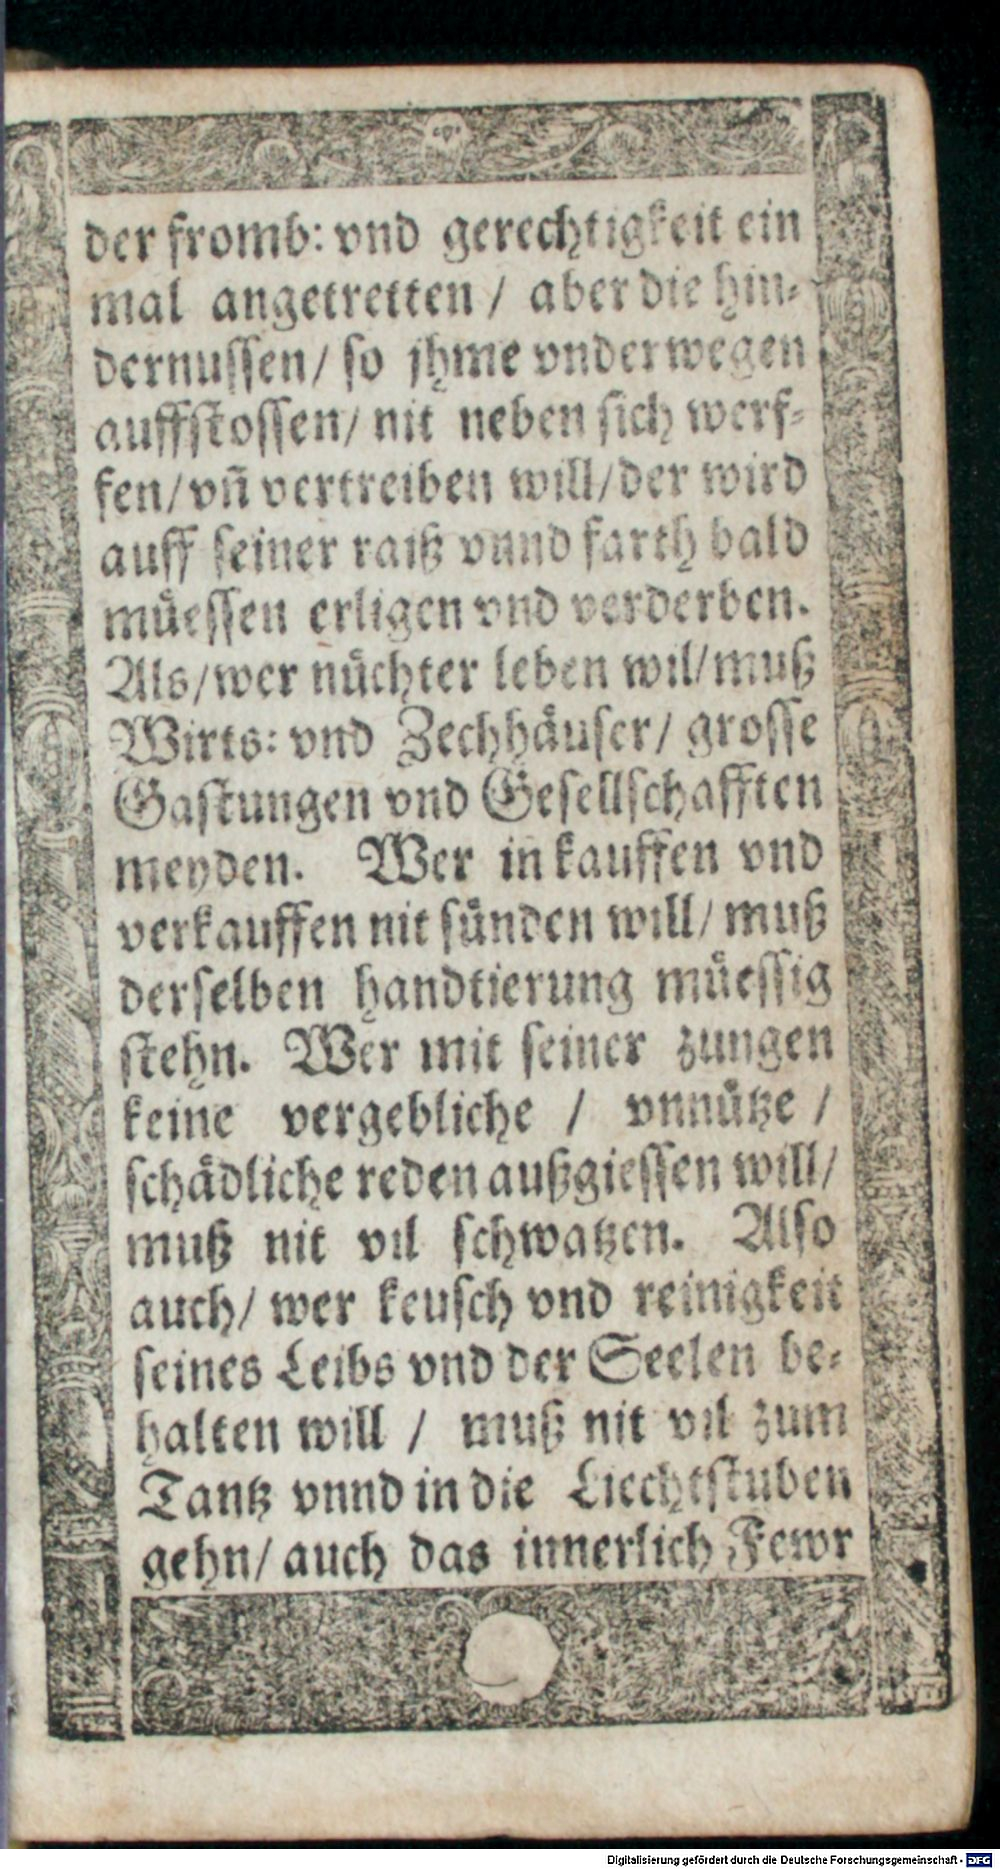 der fromb: vnd gerechtigkeit ein
mal angetretten / aber die hin-
dernussen / so jhme vnderwegen
auffstossen / nit neben sich werf-
fen / vñ vertreiben will / der wird
auff seiner raiß vnnd farth bald
müessen erligen vnd verderben.
Als / wer nüchter leben wil / muß
Wirts: vnd Zechhäuser / grosse
Gastungen vnd Gesellschafften
meyden. Wer in kauffen vnd
verkauffen nit sünden will / muß
derselben handtierung müessig
stehn. Wer mit seiner zungen
keine vergebliche / vnnütze /
schädliche reden außgiessen will /
muß nit vil schwatzen. Also
auch / wer keusch vnd reinigkeit
seines Leibs vnd der Seelen be-
halten will / muß nit vil zum
Tantz vnnd in die Liechtstuben
gehn / auch das innerlich Fewr
Digitalisierung gefördert durch die Deutsche Forschungsgemeinschaft - DFG